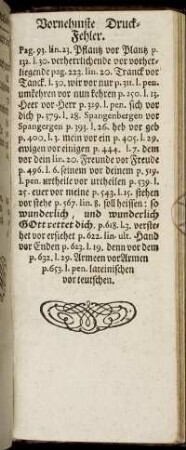 Vornehmste Druck-
Fehler.
Pag. 93. lin. 23. Pflantz vor Plantz p.
132. l. 30. verherrlichende vor vorher-
liegende pag. 223. lin. 20. Tranck vor
Tanck. l. 30. wir vor nur p. 311. l. pen.
umkehren vor nun kehren p. 250. l. 13.
Heer vor Herr p. 319. l. pen. sich vor
dich p. 379. l. 28. Spangenbergen vor
Spangergen p. 393. l. 26. heb vor geb
p. 400. l. 1. mein vor ein p. 405. l. 29.
ewigen vor einigen p. 444. l. 7. dem
vor dein lin. 20. Freunde vor Freude
p. 496. l. 6. seinem vor deinem p. 519.
l. pen. urtheile vor urtheilen p. 539. l.
25. euer vor meine p. 543. l. 15. stehen
vor stehe p. 567. lin. 8. soll heissen: so
wunderlich, und wunderlich
GOtt rettet dich. p. 618. l. 3. verste-
het vor ersiehet p. 622. lin. ult. Hand
vor Enden p. 623. l. 19. denn vor dem
p. 632. l. 29. Armeen vor Armen
p. 653. l. pen. lateinischen
vor teutschen.